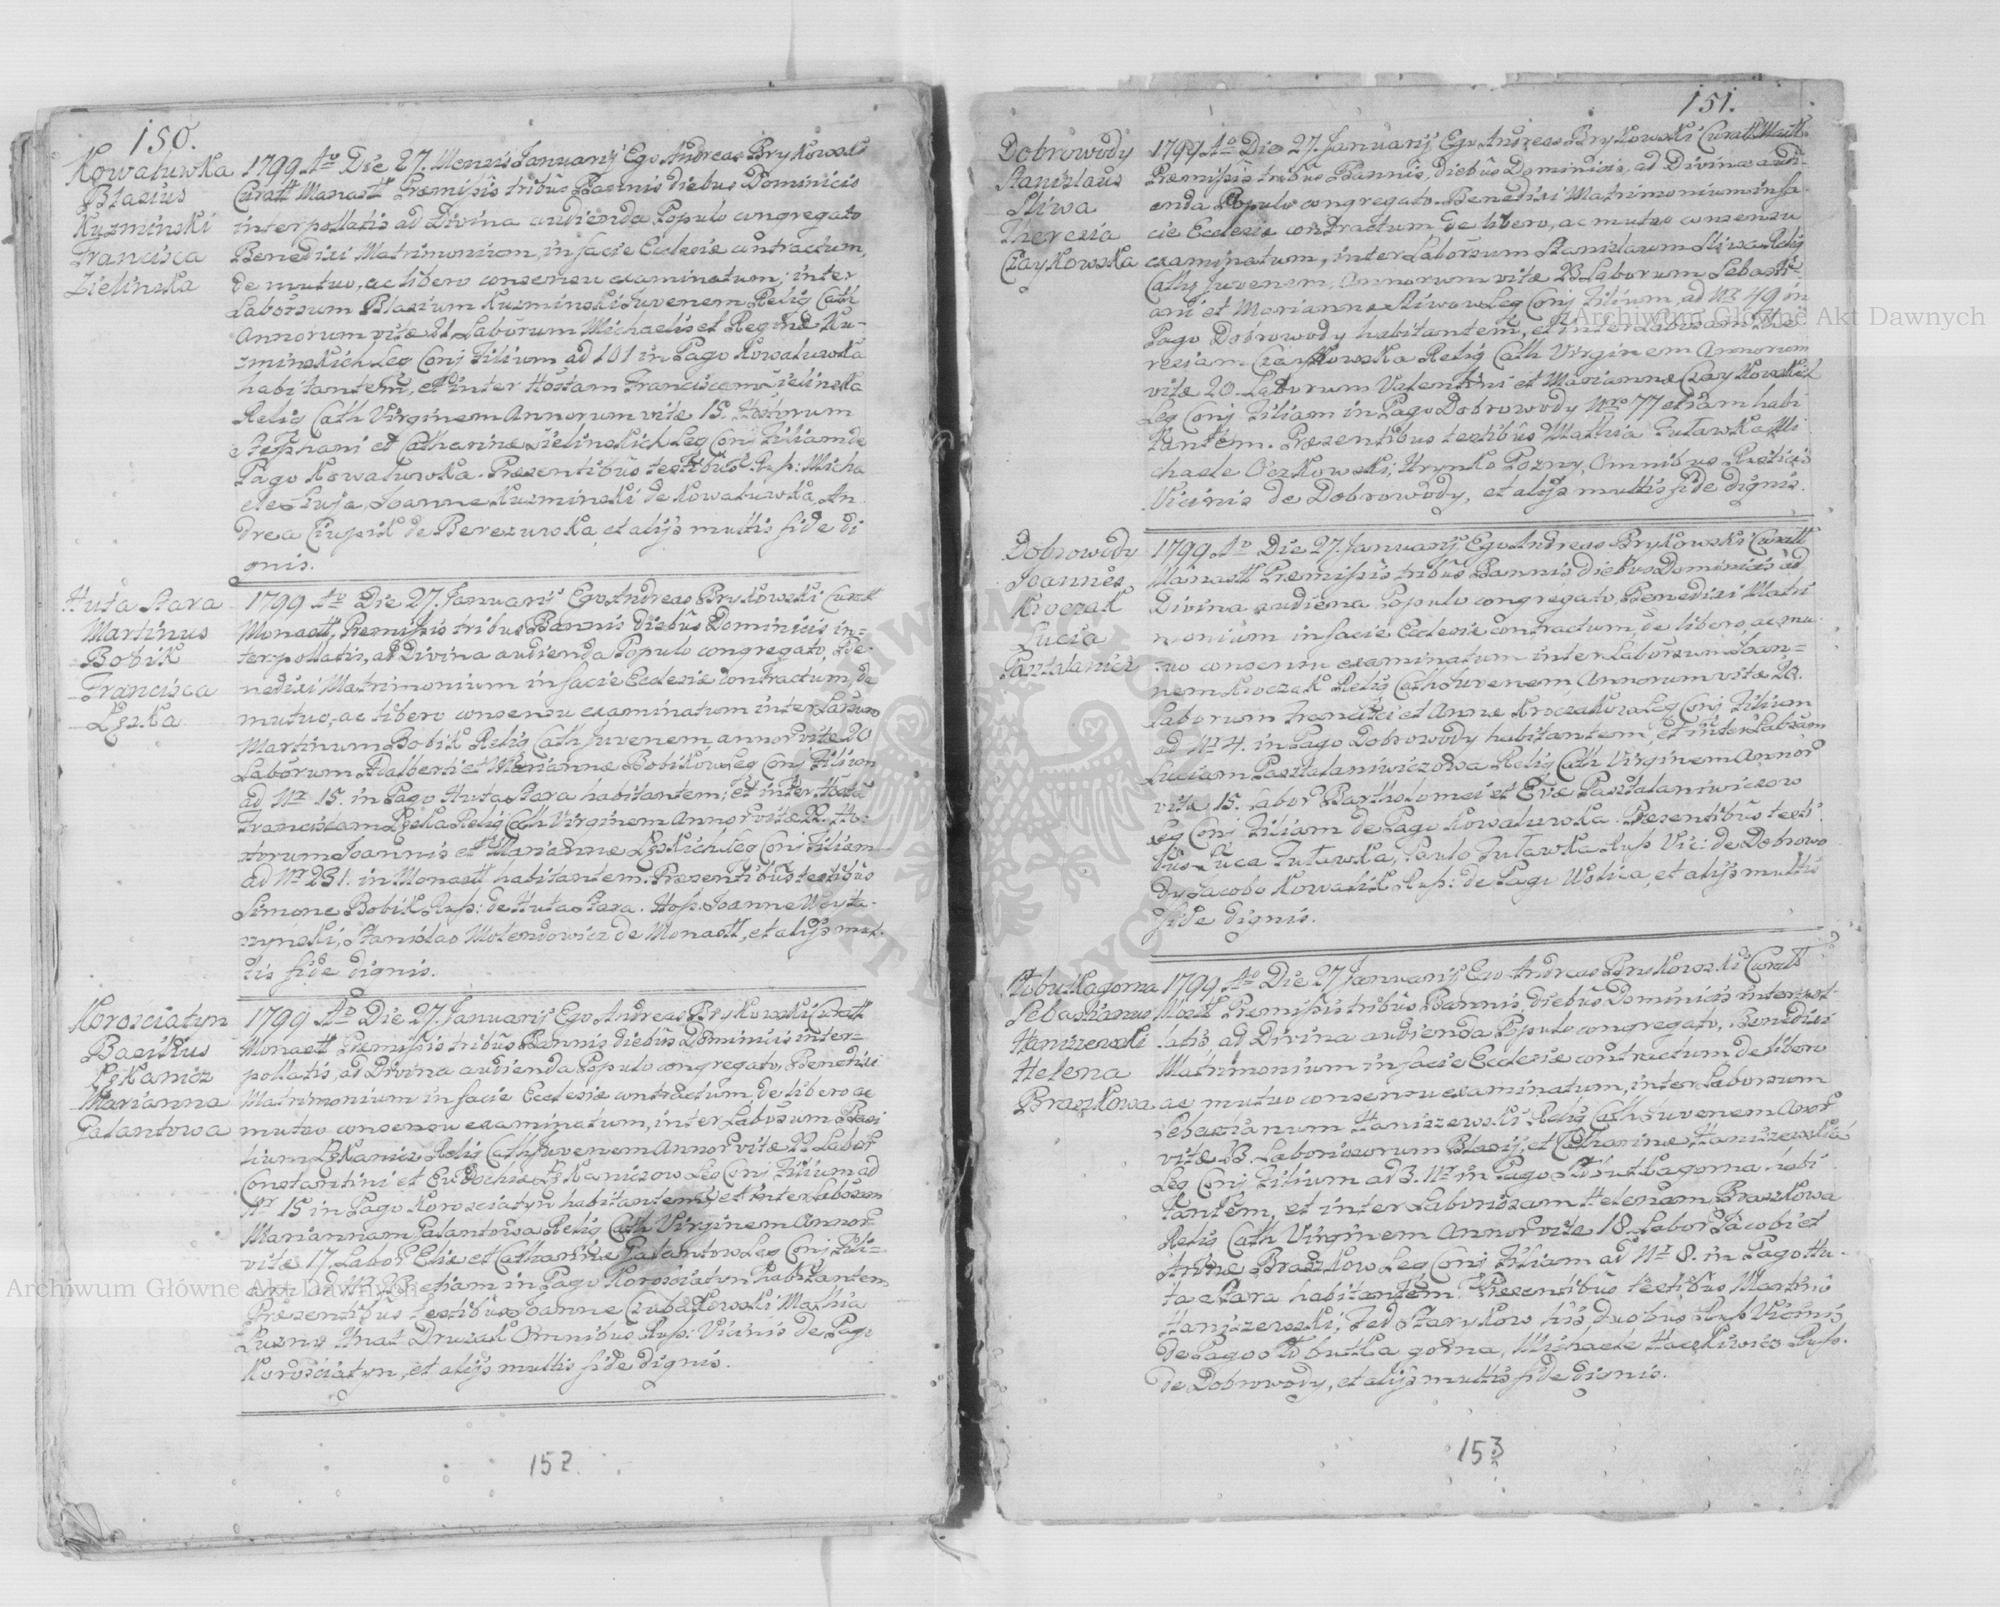 150.
Kowałuwka
Blasius
Kuzminski
Francisca
Zielinska
1799 Ao Die 27. Mensis Januarij Ego Andreas Brykowski
Curatt Monastt Præmissis tribus Bannis diebus Dominicis
interpollatis ad Divina audienda Populo congregato
Benedixi Matrimonium, in facie Ecclesiæ contractum,
de mutuo, ac libero consensu examinatum; inter
Laborsum Blasium Kuzminski Juvenem Relig Cath
Annorum vitæ 21 Laborum Michaelis et Reginæ Ku-
zminskich Leg Conj Filium ad 101 in Pago Kowałuwka
habitantem, et inter Hostam Franciscam Zielinska
Relig Cath Virginem Annorum vitæ 15. Hostorum
Stephani et Catharinæ Zielinskich Leg Conj Filiam de
Pago Kowałuwka. Præsentibus testibus Rus: Micha
ele, Joanne Kuzminski de Kowałuwka, An
drea de Berezuwka, et alijs multis fide di
gnis.
Huta Stara
Martinus
Bobik
Francisca
Lęska
1799 Ao Die 27. Januarij Ego Andreas Brykowski Curatt
Monastt, Præmissis tribus Bannis diebus Dominicis in-
terpollatis, ad Divina audienda Populo congregato, Be-
nedixi Matrimonium in facie Ecclesiæ contractum, de
mutuo, ac libero consensu examinatum inter Labsum
Martinum Bobik Relig Cath Juvenem annor vitæ 20
Laborum Adalberti et Mariannæ Bobikow Leg Conj Filium
ad Nr 15. in Pago Huta Stara habitantem; et inter Hosta
Franciscam Lęska Relig Cath Virginem Annor vitæ 22. Ho-
storum Joannis et Mariannæ Lęskich Leg Conj Filiam
ad Nr 231. in Monastt habitantem. Præsentibus testibus
Simone Bobik Rus: de Huta Stara. Hos: Joanne Woyta-
szynski, Stanislao Molendowicz de Monastt, et alijs mul-
tis fide dignis.
Korosciatyn
Basilius
Lęskanicz
Marianna
Galantowa
1799 Ao Die 27. Januarij Ego Andreas Brykowski Curatt
Monastt Præmissis tribus Bannis diebus Dominicis inter-
pollatis, ad Divina audienda Populo congregato, Benedixi
Matrimonium in facie Ecclesiæ contractum, de libero ac
mutuo consensu examinatum, inter Laborsum Basi
lium Lęskanicz Relig Cath Juvenem Annor vitæ 22 Labor
Constantini et Eudochiæ Lęskaniczow Leg Conj Filium ad
Nr 15 in Pago Korosciatyn habitantem; et inter Laborsam
Mariannam Galantowa Relig Cath Virginem Annor
vitæ 17. Labor Eliæ et Catharinæ Galantow Leg Conj Fili-
am ad Nr etiam in Pago Korosciatyn habitantem
Præsentibus testibus Joanne Czubakowski Mathia
Luzny Hnat Druzak Omnibus Rus: Vicinis de Pago
Korosciatyn, et alijs multis fide dignis.
152
151.
Dobrowody
Stanislaus
Sliwa
Theresia
Czaykowska
1799 Ao Die 27. Januarij, Ego Andreas Brykowski Curatt Mostt
Præmissis tribus Bannis, Diebus Dominicis, ad Divina audi-
enda Populo congregato. Benedixi Matrimonium in fa-
cie Ecclesiæ contractum de libero, ac mutuo consensu
examinatum, inter Laborsum Stanislaum Sliwa Relig
Cath Juvenem, Annorum vitæ 23 Laborum Sebasti-
ani et Mariannæ Sliwow Leg Conj Filium, ad Nr 49 in
Pago Dobrowody habitantem, et inter Laborsam The
resiam Czaykowska Relig Cath Virginem Annorum
vitæ 20. Laborum Valentini et Mariannæ Czaykowskich
Leg Conj Filiam in Pago Dobrowody Nro 77 etiam habi
tantem. Præsentibus testibus Mathia Pulawka, Mi
chaele Oczkowski; Hrynko Pozny, Omnibus Rusticis
Vicinis de Dobrowody, et alijs multis fide dignis.
Dobrowody
Joannes
Kroczak
Lucia
Pasztalanicz
1799 Ao Die 27. Januarij, Ego Andreas Brykowski Curatt
Monastt Præmissis tribus Bannis diebus Dominicis ad
Divina audiena Populo congregato, Benedixi Matri
monium in facie Ecclesiæ contractum, de libero, ac mu-
tuo consensu examinatum inter Laborsum Joan-
nem Kroczak Relig Cath Juvenem, Annorum vitæ 23.
Laborum Francisci et Annæ Kroczakow Leg Conj Filium
ad Nr 4. in Pago Dobrowody habitantem, et inter Labsam
Luciam Pasztalaniwiczowa Relig Cath Virginem Annor
vitæ 15. Labor Bartholomei et Evæ Pasztalaniwiczow
Leg Conj Filiam de Pago Kowałuwka. Præsentibus testi
bus Luca Pulawka, Paulo Pulawka Rus Vic: de Dobrowo
dy Jacobo Kowalik Rus: de Pago Wolica, et alijs multis
fide dignis.
Słobutkagorna
Sebastianus
Haniszewski
Helena
Braszkowa
1799 Ao Die 27 Januarij Ego Andreas Brykowski Curatt
Mostt Præmissis tribus Bannis, diebus Dominicis interpol-
latis ad Divina audienda Populo congregato, Benedixi
Matrimonium in facie Ecclesiæ contractum de libero
ac mutuo consensu examinatum, inter Laborsum
Sebastianum Haniszewski Relig Cath Juvenem Anor
vitæ 23. Laboriosorum Blasij, et Catharinæ Haniszewskich
Leg Conj Filium ad 3. Nr in Pago Słobutkagorna habi
tantem, et inter Laboriosam Helenam Braszkowa
Relig Cath Virginem Annor vitæ 18. Labor Jacobi et
Annæ Braszkow Leg Conj Filiam ad Nr 8. in Pago Hu-
ta Stara habitantem Præsentibus testibus Martino
Haniszewski, Fed Starykow his duobus Rus Vicinis
de Pago Słobutka gorna, Michaele Haskiwicz Rus.
de Dobrowody, et alijs multis fide dignis.
153
Archiwum Główne Akt Dawnych
Archiwum Główne Akt Dawnych